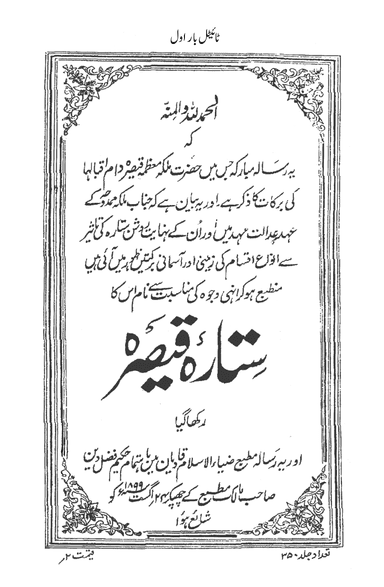 ٹائیٹل بار اول
الحمدللہ والمنہ
کہ
یہ رسالہ مبارکہ جس میں حضرت ملکہ معظمہ قیصرہ دام اقبالہا
کی برکات کا ذکر ہے اور یہ بیان ہے کہ جناب ملکہ ممدوحہ کے
عہد عدالت مہد میں اور اُن کے نہایت روشن ستارہ کی تاثیر
سے انواع اقسام کی زمینی اور آسمانی برکتیں ظہور میں آئی ہیں
منطبع ہو کر انہی وجوہ کی مناسبت سے نام اس کا
ستارہ قیصرہ
رکھا گیا
اور یہ رسالہ مطبع ضیاء الاسلام قادیان میں باہتمام حکیم فضل دین
صاحب مالک مطبع کے چھپکر ۲۴ اگست ۱۸۹۹ء کو
شائع ہوا
تعداد جلد ۳۵۰ قیمت ۲ر